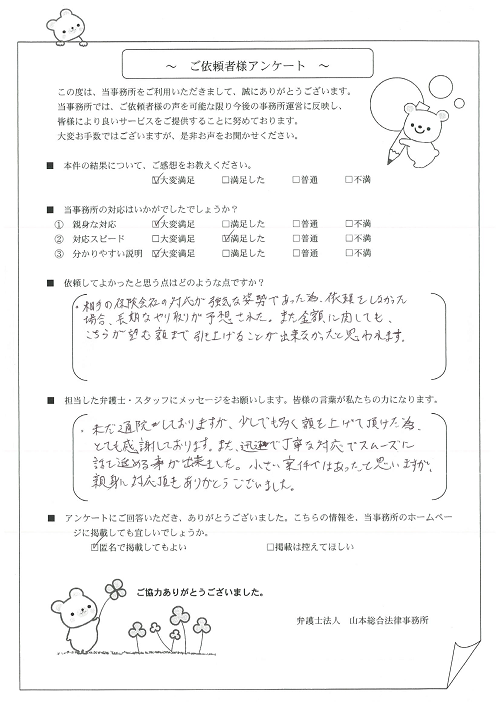 ～ ご依頼者様アンケート ～
この度は、当事務所をご利用いただきまして、誠にありがとうございます。
当事務所では、ご依頼者様の声を可能な限り今後の事務所運営に反映し、
皆様により良いサービスをご提供することに努めております。
大変お手数ではございますが、是非お声をお聞かせください。
■ 本件の結果について、ご感想をお教えください。
☑大変満足 □満足した □普通 □不満
■ 当事務所の対応はいかがでしたでしょうか？
① 親身な対応 ☑大変満足 □満足した □普通 □不満
② 対応スピード □大変満足 ☑満足した □普通 □不満
③ 分かりやすい説明 ☑大変満足 □満足した □普通 □不満
■ 依頼してよかったと思う点はどのような点ですか？
・相手の保険会社の対応が強気な姿勢であった為、依頼をしなかった
場合、長期なやり取りが予想された。また金額に関しても、
こちらが望む額まで引上げることが出来なかったと思われます。
■ 担当した弁護士・スタッフにメッセージをお願いします。皆様の言葉が私たちの力になります。
・未だ通院をしておりますが、少しでも多く額を上げて頂けた為、
とても感謝しております。また、迅速で丁寧な対応でスムーズに
話を進める事が出来ました。小さい案件ではあったと思いますが、
親身に対応頂きありがとうございました。
■ アンケートにご回答いただき、ありがとうございました。こちらの情報を、当事務所のホームペー
ジに掲載しても宜しいでしょうか。
☑匿名で掲載してもよい □掲載は控えてほしい
ご協力ありがとうございました。
弁護士法人 山本総合法律事務所